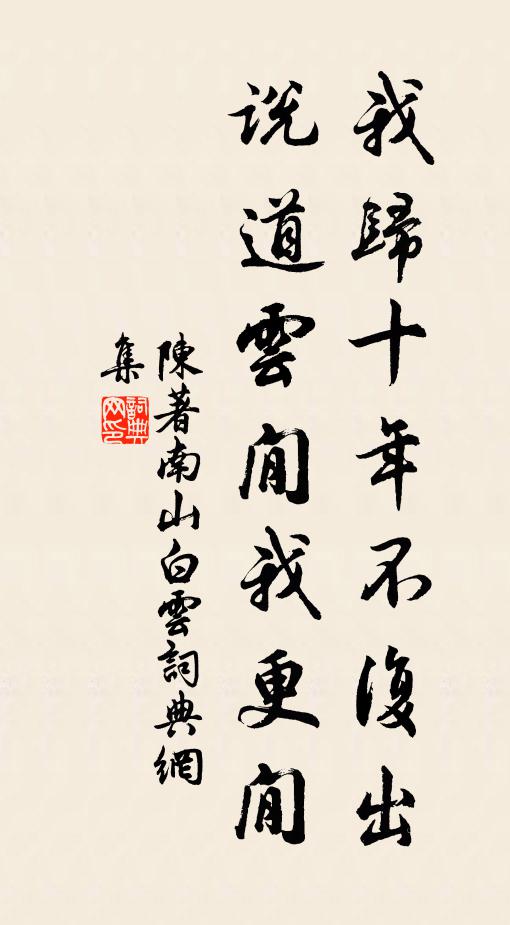 我歸十年不復出
說道雲閒我更閒
陳著南山白雲詞典網
集
詞典
网印